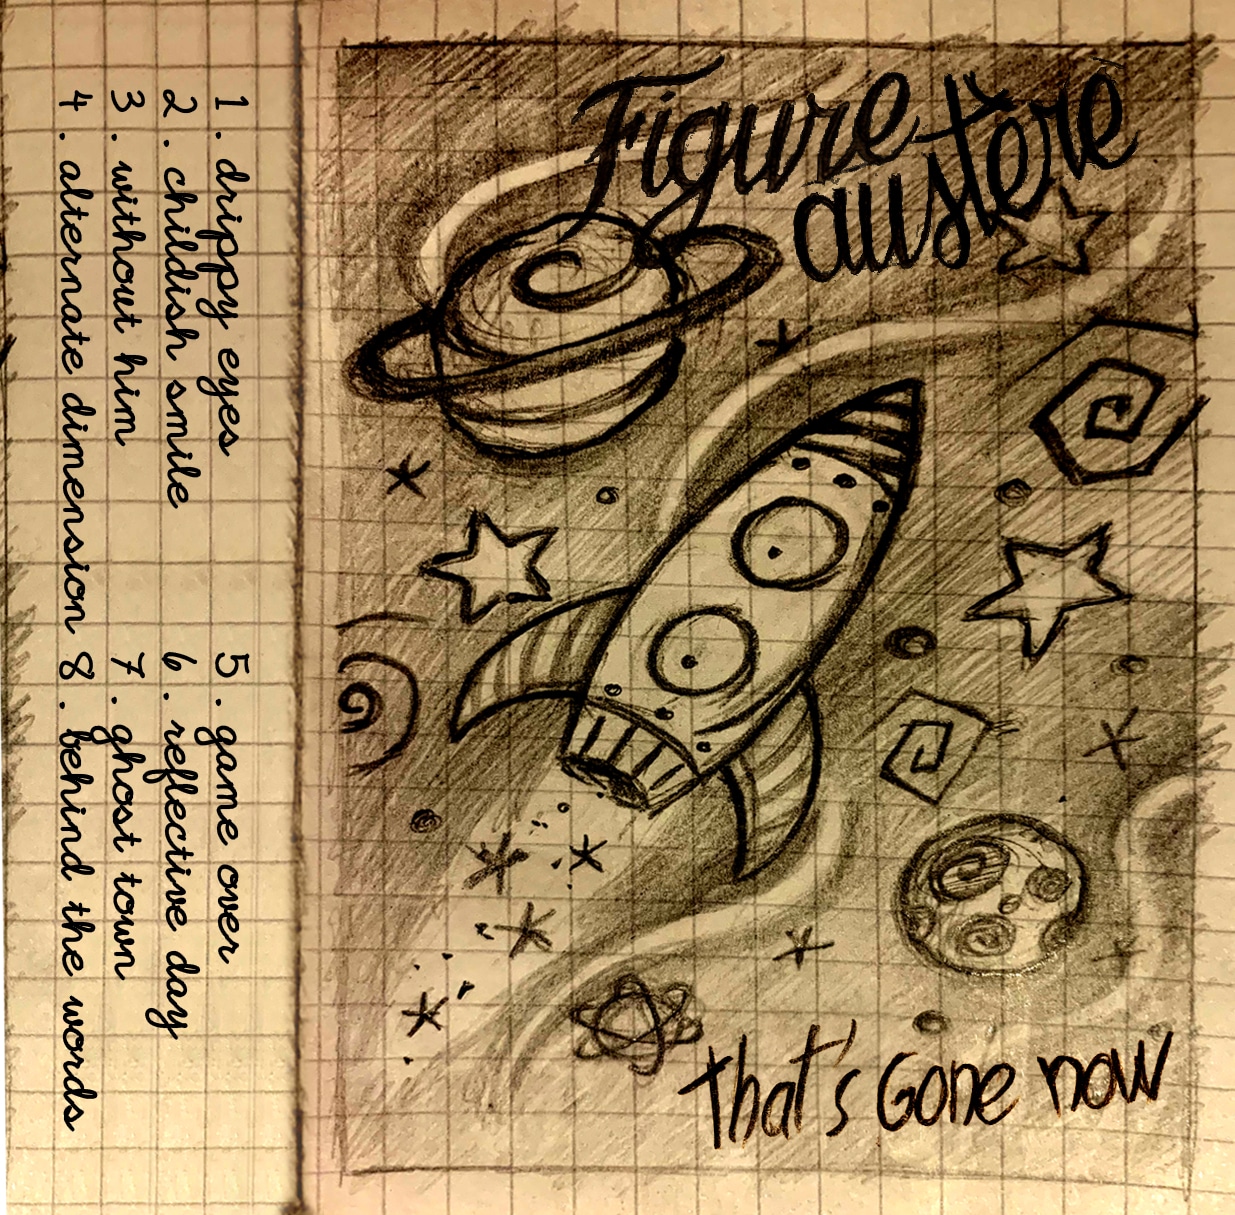 Figure
austère
1. drippy eyes
2. childish smile
3. without him
4. alternate dimension
5. game over
6. reflective day
7. ghost town
8. behind the words
that's Gone now